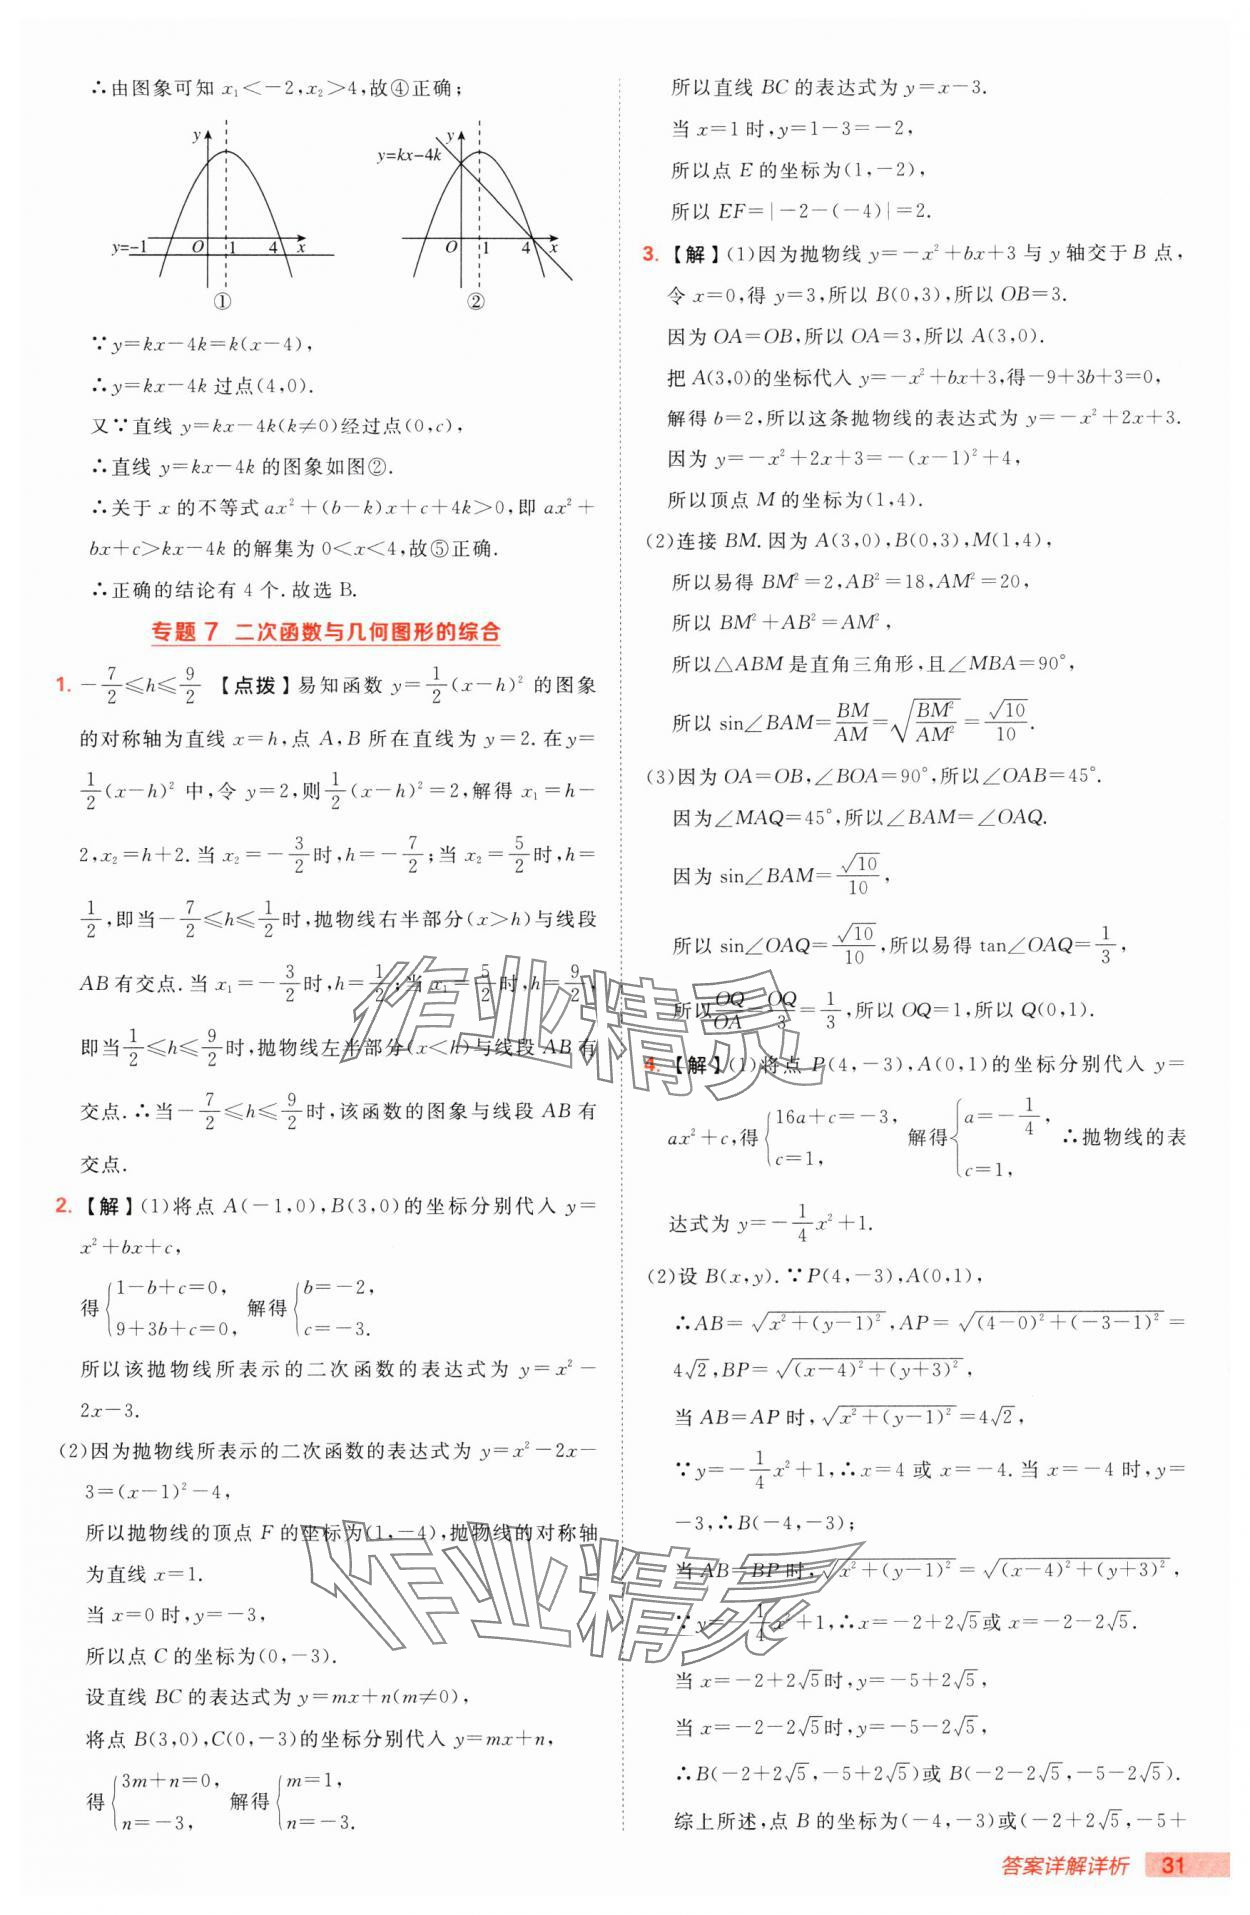 ∴由图象可知 x₁<-2,x₂>4,故④正确;
y
y=-1
O
1
4
x
①
y
y=kx-4k
O
1
4
x
②
∵y=kx-4k=k(x-4),
∴y=kx-4k 过点(4,0).
又∵直线 y=kx-4k(k≠0)经过点(0,c),
∴直线 y=kx-4k 的图象如图②.
∴关于 x 的不等式 ax²+(b-k)x+c+4k>0,即 ax²+
bx+c>kx-4k 的解集为 0<x<4,故⑤正确.
∴正确的结论有 4 个.故选 B.
专题 7 二次函数与几何图形的综合
1. -7/2≤h≤9/2 【点拨】易知函数 y=1/2(x-h)² 的图象
的对称轴为直线 x=h,点 A,B 所在直线为 y=2.在 y=
1/2(x-h)² 中,令 y=2,则1/2(x-h)²=2,解得 x₁=h-
2,x₂=h+2.当 x₂=-3/2时,h=-7/2;当 x₂=5/2时,h=
1/2,即当-7/2≤h≤1/2时,抛物线右半部分(x>h)与线段
AB 有交点.当 x₁=-3/2时,h=1/2;当 x₁=5/2时,h=9/2,
即当1/2≤h≤9/2时,抛物线左半部分(x<h)与线段 AB 有
交点.∴当-7/2≤h≤9/2时,该函数的图象与线段 AB 有
交点.
2. 【解】(1)将点 A(-1,0),B(3,0)的坐标分别代入 y=
x²+bx+c,
得{1-b+c=0, 9+3b+c=0, 解得{b=-2, c=-3.
所以该抛物线所表示的二次函数的表达式为 y=x²-
2x-3.
(2)因为抛物线所表示的二次函数的表达式为 y=x²-2x-
3=(x-1)²-4,
所以抛物线的顶点 F 的坐标为(1,-4),抛物线的对称轴
为直线 x=1.
当 x=0 时,y=-3,
所以点 C 的坐标为(0,-3).
设直线 BC 的表达式为 y=mx+n(m≠0),
将点 B(3,0),C(0,-3)的坐标分别代入 y=mx+n,
得{3m+n=0, n=-3, 解得{m=1, n=-3.
所以直线 BC 的表达式为 y=x-3.
当 x=1 时,y=1-3=-2,
所以点 E 的坐标为(1,-2),
所以 EF=|-2-(-4)|=2.
3. 【解】(1)因为抛物线 y=-x²+bx+3 与 y 轴交于 B 点,
令 x=0,得 y=3,所以 B(0,3),所以 OB=3.
因为 OA=OB,所以 OA=3,所以 A(3,0).
把 A(3,0)的坐标代入 y=-x²+bx+3,得-9+3b+3=0,
解得 b=2,所以这条抛物线的表达式为 y=-x²+2x+3.
因为 y=-x²+2x+3=-(x-1)²+4,
所以顶点 M 的坐标为(1,4).
(2)连接 BM.因为 A(3,0),B(0,3),M(1,4),
所以易得 BM²=2,AB²=18,AM²=20,
所以 BM²+AB²=AM²,
所以△ABM 是直角三角形,且∠MBA=90°,
所以 sin∠BAM=BM/AM=√(BM²/AM²)=√10/10.
(3)因为 OA=OB,∠BOA=90°,所以∠OAB=45°.
因为∠MAQ=45°,所以∠BAM=∠OAQ.
因为 sin∠BAM=√10/10,
所以 sin∠OAQ=√10/10,所以易得 tan∠OAQ=1/3,
所以OQ/OA=OQ/3=1/3,所以 OQ=1,所以 Q(0,1).
4. 【解】(1)将点 P(4,-3),A(0,1)的坐标分别代入 y=
ax²+c,得{16a+c=-3, c=1, 解得{a=-1/4, c=1, ∴抛物线的表
达式为 y=-1/4x²+1.
(2)设 B(x,y).∵P(4,-3),A(0,1),
∴AB=√(x²+(y-1)²),AP=√((4-0)²+(-3-1)²)=
4√2,BP=√((x-4)²+(y+3)²),
当 AB=AP 时,√(x²+(y-1)²)=4√2,
∵y=-1/4x²+1,∴x=4 或 x=-4.当 x=-4 时,y=
-3,∴B(-4,-3);
当 AB=BP 时,√(x²+(y-1)²)=√((x-4)²+(y+3)²),
∵y=-1/4x²+1,∴x=-2+2√5或 x=-2-2√5.
当 x=-2+2√5时,y=-5+2√5,
当 x=-2-2√5时,y=-5-2√5,
∴B(-2+2√5,-5+2√5)或 B(-2-2√5,-5-2√5).
综上所述,点 B 的坐标为(-4,-3)或(-2+2√5,-5+
作业精灵
作业精灵
答案详解详析 31